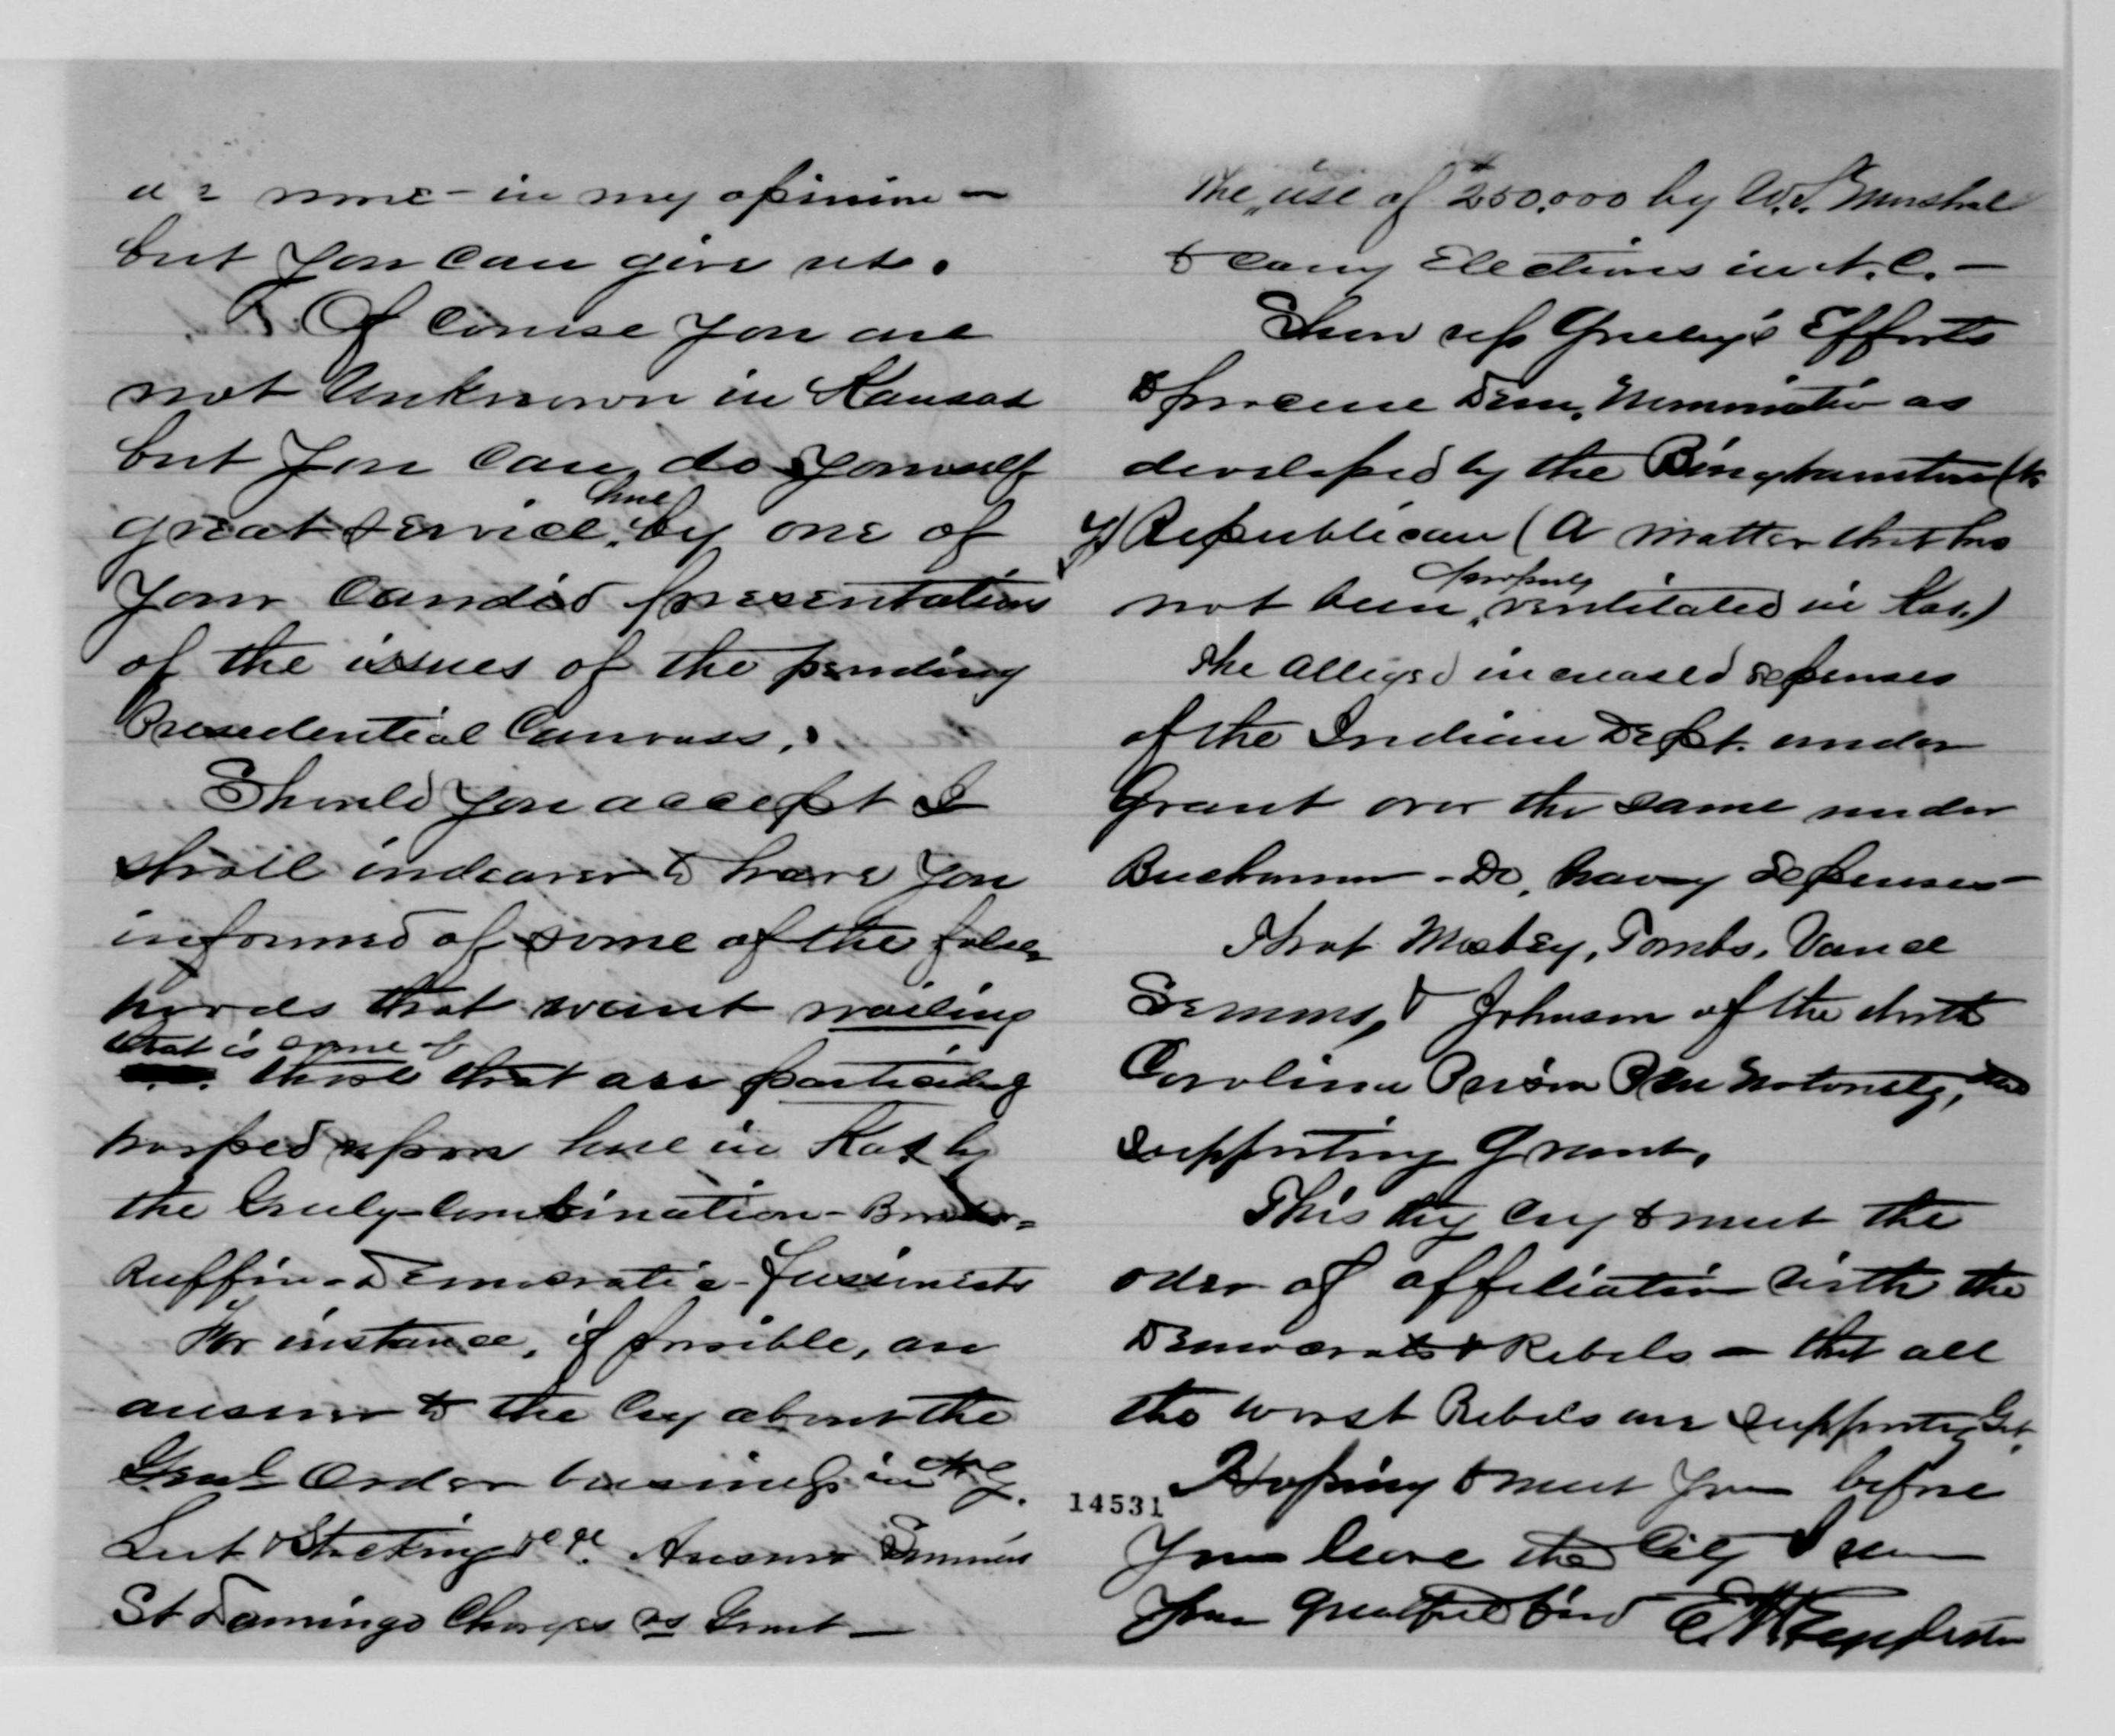 none - in my opinion -
but you can give us.
Of Course you are
not Unknown in Kansas
but you can, do yourself
here
great service by one of
your Candid presentations
of the issues of the pending
Presedential Canvass.
Should you accept I
shall indeavor to have you
informed of some of the false-
hoods that want nailing
that is some of
those that are particularly
harped upon here in Kas by
the Greely-Combination-Border-
Ruffin-Democratic-fusionists
For instance, if possible, an
answer to the Cry about the
Genl Order business in N.Y.
Leet & Stocking &c &c. Answer Sumner's
St Domingo Charges vs Grant -
The use of $250,000 by U.S. Marshal
to carry Elections in N.C. -
Show up Greeley's Efforts
to procure Dem. Nomination as
developed by the Binghamton (N.
Y) Republican (A matter that has
properly
not been ventilated in Kas.)
The Alleged increased expenses
of the Indian Dept. under
Grant over the same under
Buchanan - Do, Navy Expenses -
That Mosbey, Tombs, Vance
Semms, & Johnson of the North
Carolina Prison Pen Notoriety, are
supporting Grant.
This they Cry to meet the
oder of affiliation with the
Democrats & Rebels - that all
the worst Rebels are supporting Gt.
Hoping to meet you before
14531
You leave the City I am
Your grateful frind